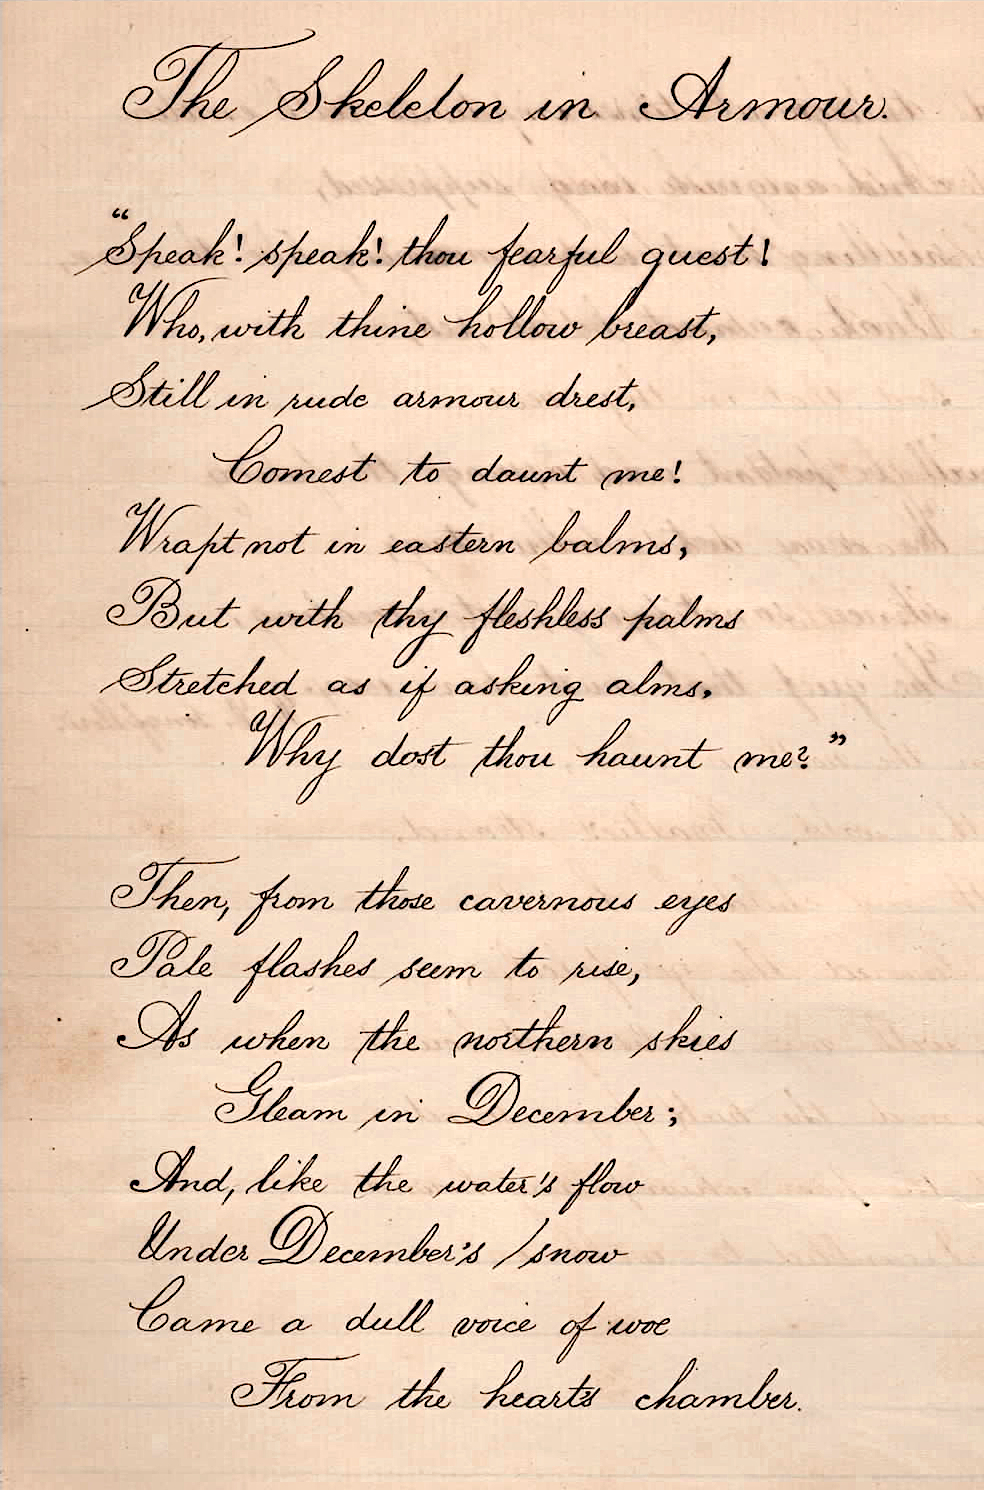 The Skeleton in Armour.
“Speak! speak! thou fearful guest!
Who, with thine hollow breast,
Still in rude armour drest,
Comest to daunt me!
Wrapt not in eastern balms,
But with thy fleshless palms
Stretched as if asking alms.
Why dost thou haunt me?”
Then, from those cavernous eyes
Pale flashes seem to rise,
As when the northern skies
Gleam in December;
And, like the water's flow
Under December's snow
Came a dull voice of woe
From the heart's chamber.